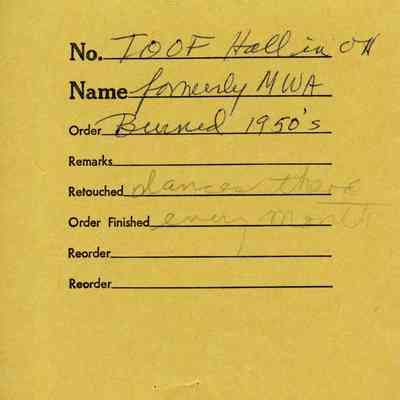 No. IOOF Hall in OH
Name formerly MWA
Order Burned 1950's
Remarks
Retouched dances there
Order Finished every month
Reorder
Reorder